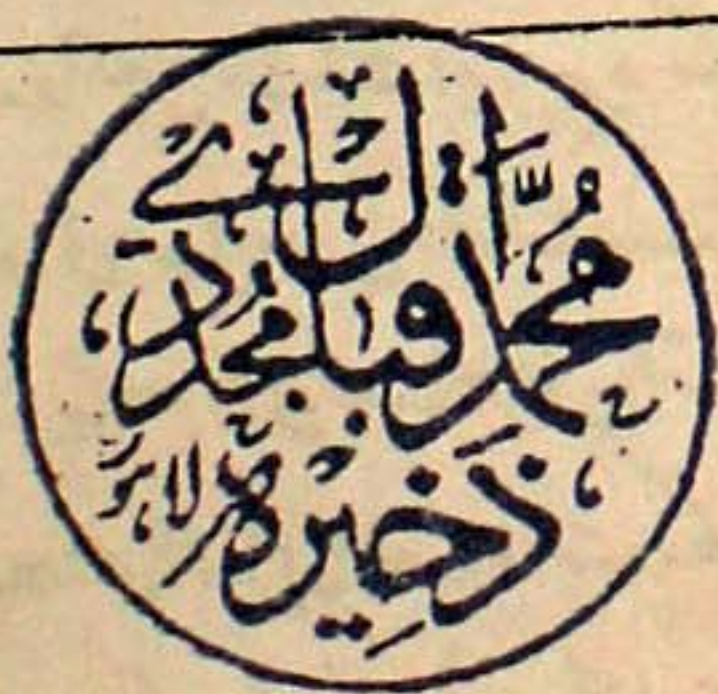 محمد اقبال مجددی
ذخیرہ لاہور